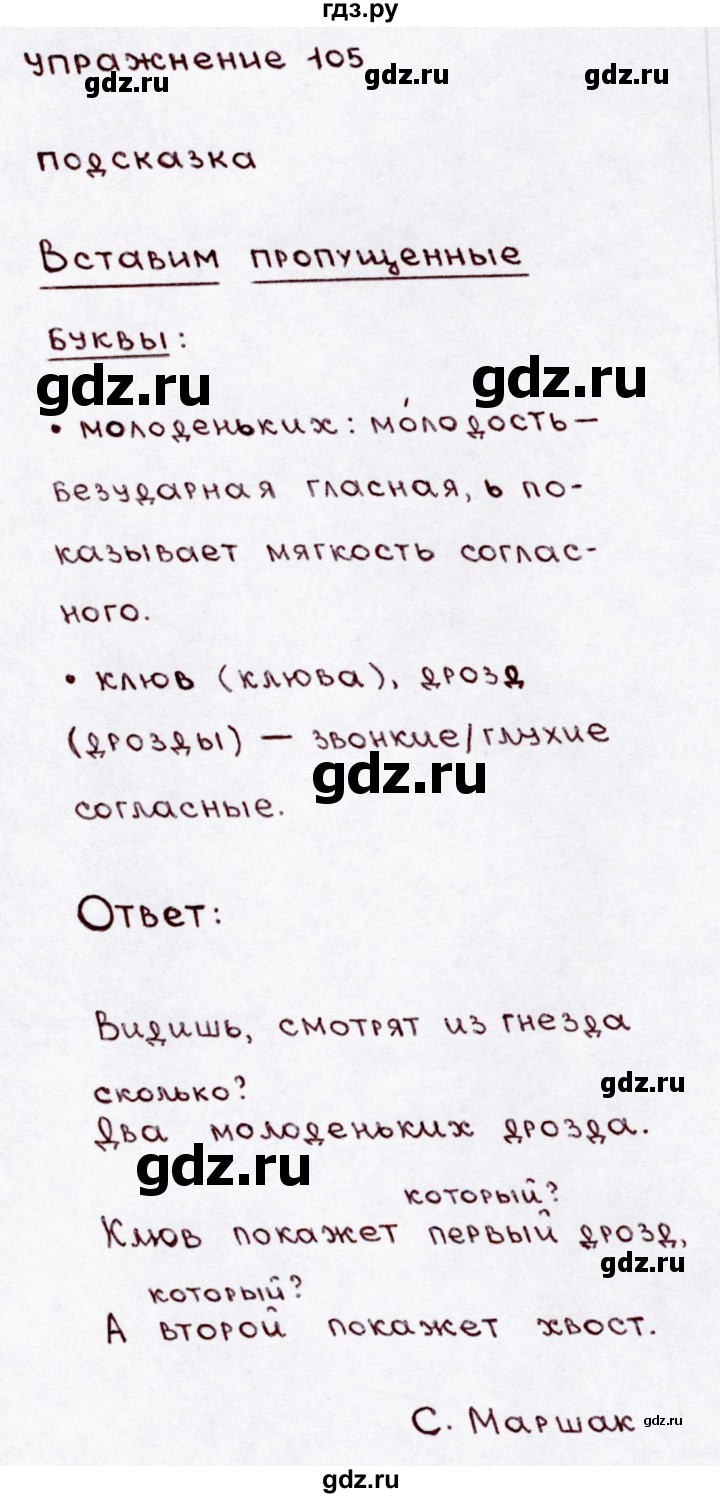 гдз.ру
упражнение 105
gdz.ru gdz.ru gdz.ru
подсказка
Вставим пропущенные
буквы:
gdz.ru gdz.ru
• молоденьких: мо́лодость —
безударная гласная, ь по-
казывает мягкость соглас-
ного.
• клюв (клюва), дрозд
(дрозды) — звонкие/глухие
gdz.ru
согласные.
Ответ:
Видишь, смотрят из гнезда
gdz.ru
сколько?
Два молоденьких дрозда.
gdz.ru
который?
Клюв покажет первый дрозд,
gdz.ru
который?
А второй покажет хвост.
С. Маршак gdz.ru
gdz.ru